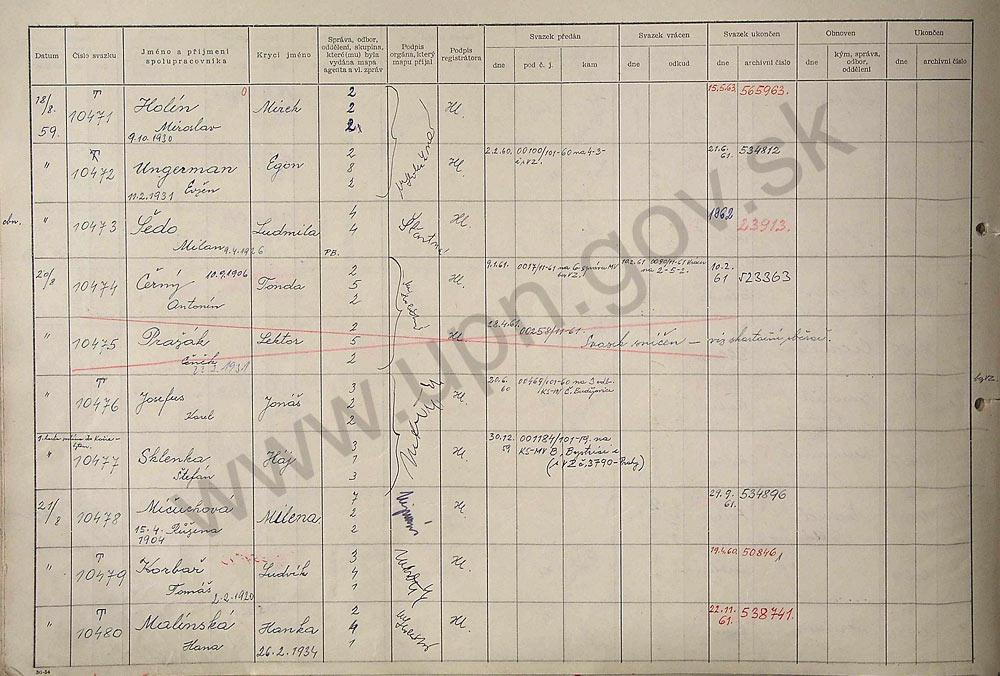 Datum
Číslo svazku
Jméno a příjmení
spolupracovníka
Krycí jméno
Správa, odbor,
oddělení, skupina,
které(mu) byla
vydána mapa
agenta a vl. zpráv
Podpis
orgána, který
mapu přijal
Podpis
registrátora
Svazek předán
dne
pod č. j.
kam
Svazek vrácen
dne
odkud
Svazek ukončen
dne
archivní číslo
Obnoven
dne
kým, správa,
odbor,
oddělení
Ukončen
dne
archivní číslo
18/8. 59. T 10471 Holín Mirek 2 2 2 Hl. 15.5.63 565963.
Miroslav
9.10.1930
" T 10472 Ungerman Egon 2 8 2 Hl. 2.2.60. 00100/101-60 na 4-3- 21.6. 61. 534812
Evžen
11.2.1931
obn. " 10473 Šedo Ludmila 4 4 Hl. 1962 23913.
Milan 9.4.1926 PB.
20/8 T 10474 10.9.1906
Černý Tonda 2 5 2 Hl. 9.1.61. 0017/11-61 na 6. správu MV 10.2.61 0090/11-61 na 2-5-1. 10.2. 61 523363
Antonín
" 10475 Pražák Lektor 2 5 2 Hl. 28.4.61. 00258/11-61. Svazek zničen – viz skartační
Čeněk
1931
" T 10476 Josefus Jonáš 3 2 2 Hl. 20.6. 60 00469/101-60 na 3 odb.
KS-MV Č. Budějovice
Karel
" 10477 Sklenka Háj 3 3 3 Hl. 30.12. 59 001184/101-19. na
KS-MV B. Bystrica
(i VZ č. 3790-Prahy)
Štefan
21/8 T 10478 Mičuchová Milena 7 2 2 Hl 29.9. 61. 534896
15.4. Růžena
1904
" T 10479 Korbař Ludvík 3 4 1 Hl. 19.4.60 50846
Tomáš
2.2.1920
" T 10480 Malínská Hanka 2 4 1 Hl. 22.11. 61. 538741.
Hana 26.2.1934
bez VZ.
30-54
www.upn.gov.sk